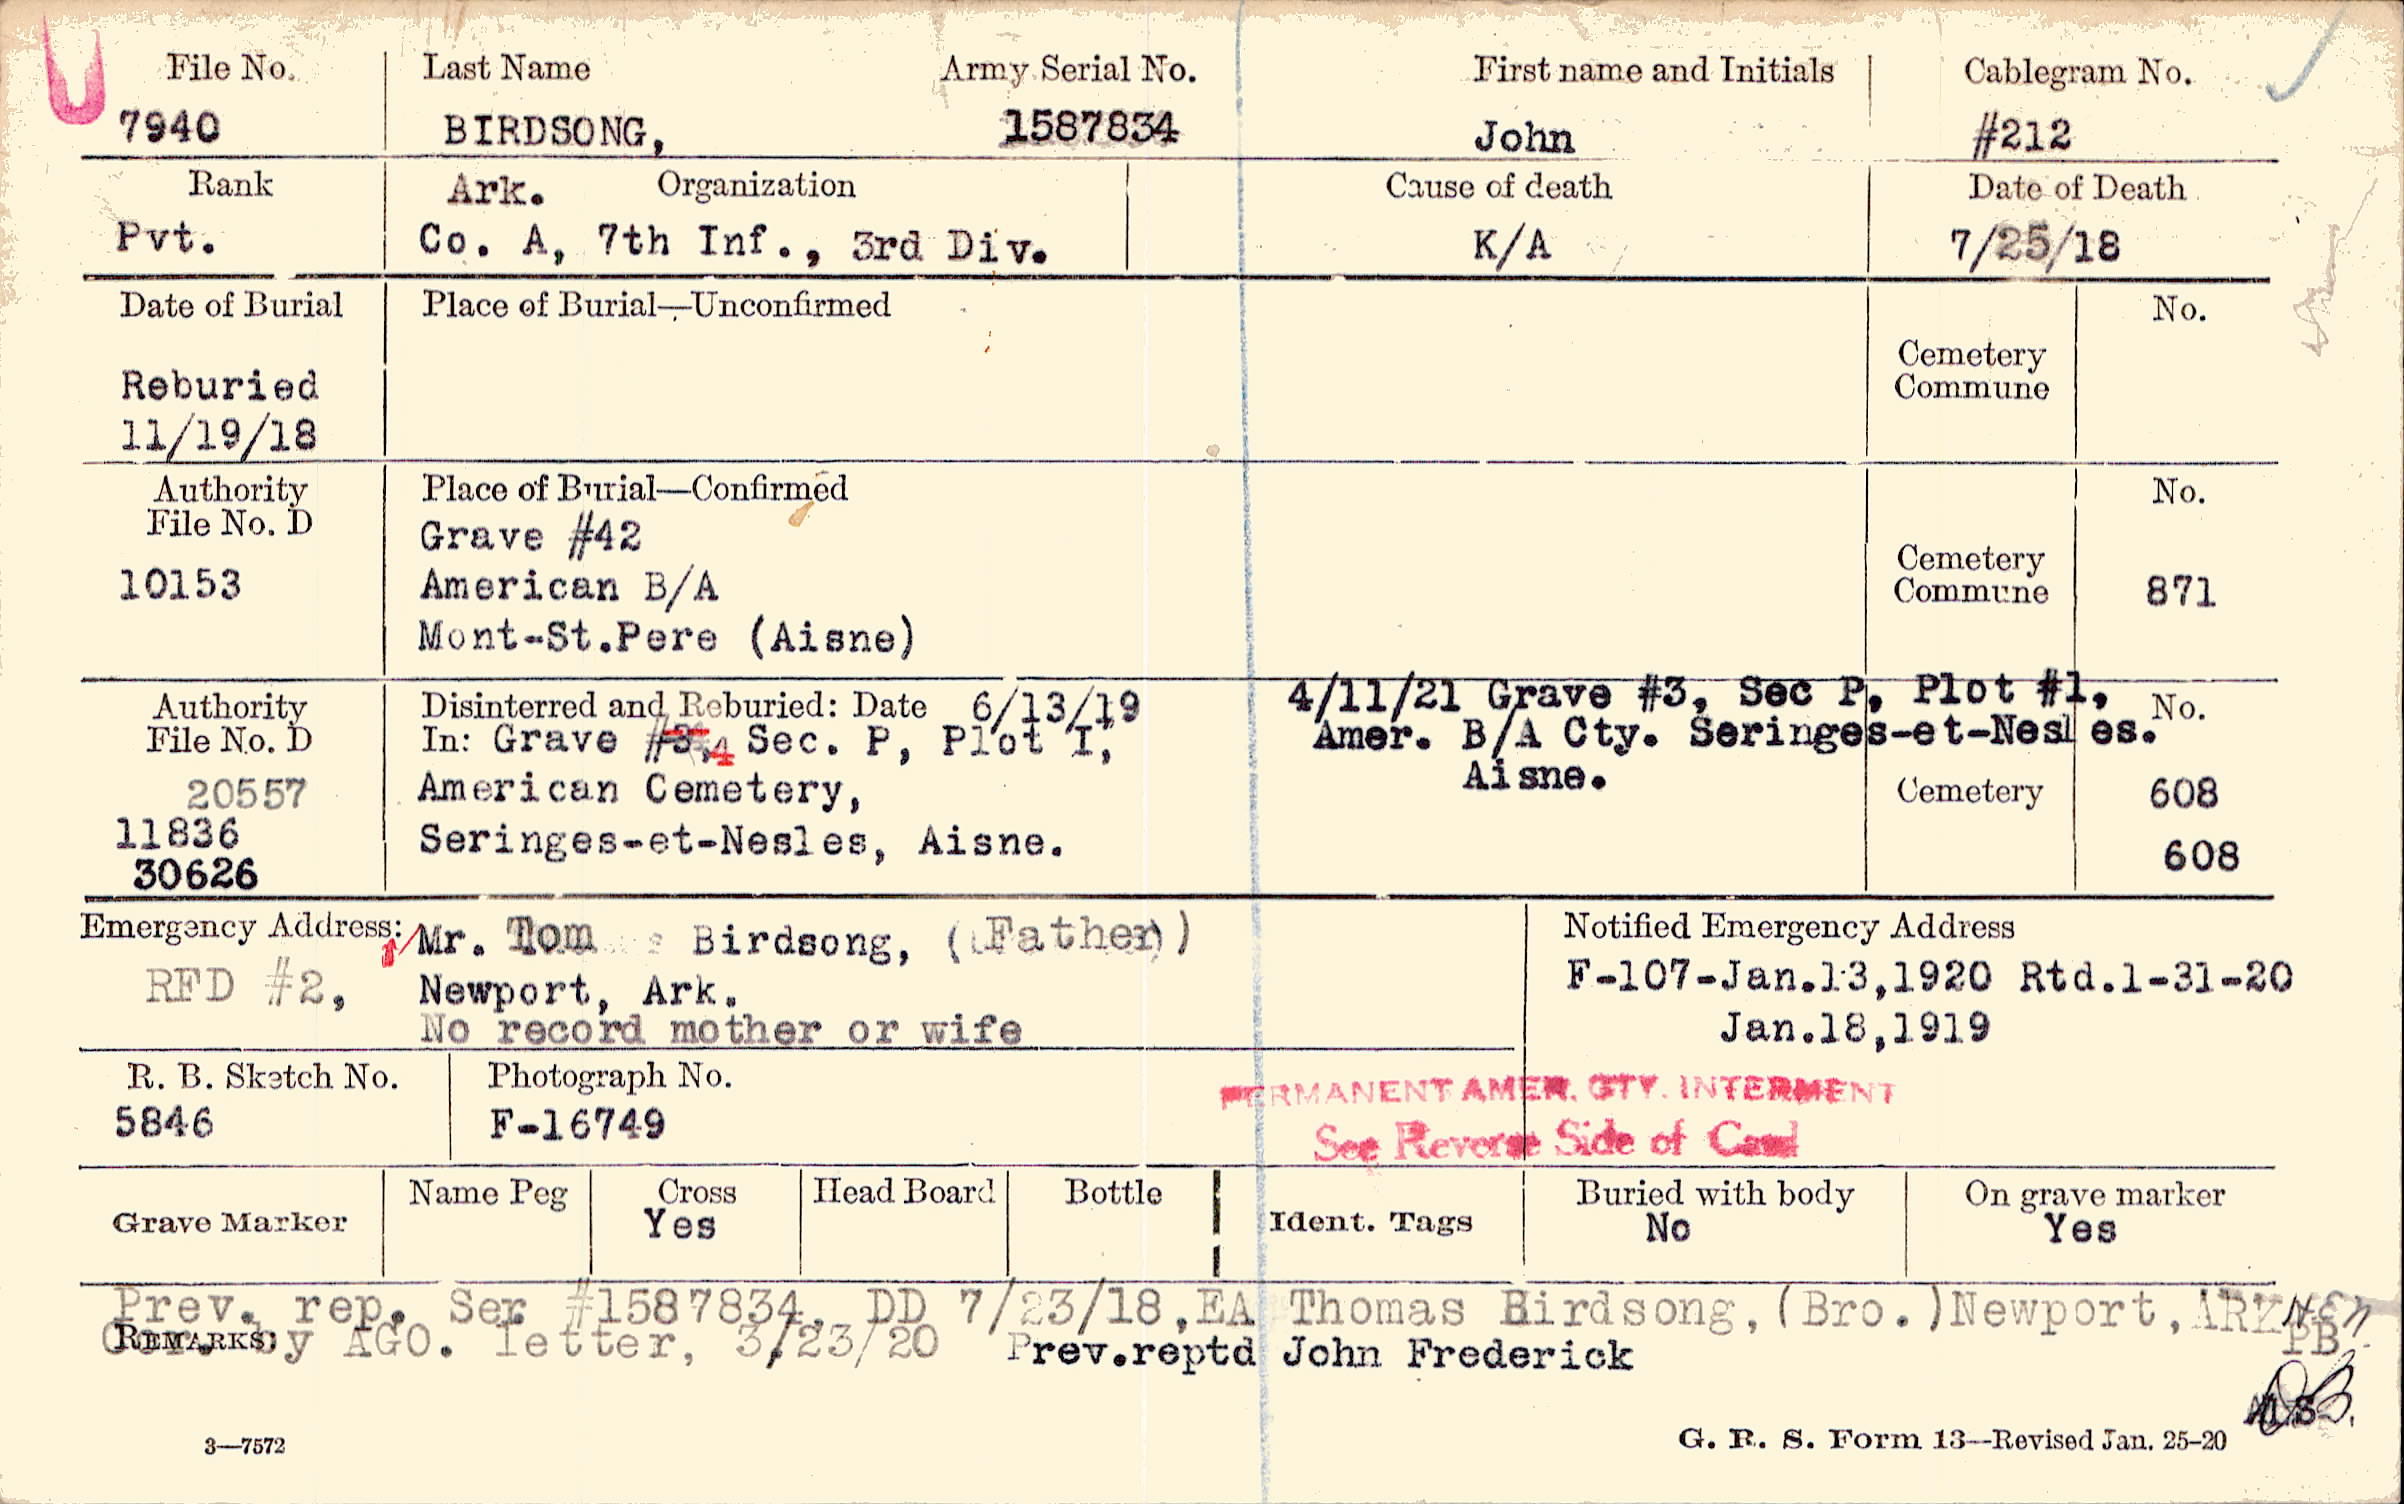 File No. Last Name Army Serial No. First name and Initials Cablegram No.
7940 BIRDSONG, 1587834 John #212
Rank Ark. Organization Cause of death Date of Death
Pvt. Co. A, 7th Inf., 3rd Div. K/A 7/25/18
Date of Burial Place of Burial—Unconfirmed No.
Cemetery
Reburied Commune
11/19/18
Authority Place of Burial—Confirmed No.
File No. D Grave #42
Cemetery
10153 American B/A Commune 871
Mont-St.Pere (Aisne)
Authority Disinterred and Reburied: Date 6/13/19 4/11/21 Grave #3, Sec P, Plot #1, No.
File No. D In: Grave #3, 4 Sec. P, Plot I, Amer. B/A Cty. Seringes-et-Nesles.
Aisne.
20557 American Cemetery, Cemetery 608
11836 Seringes-et-Nesles, Aisne.
30626 608
Emergency Address: Mr. Tom Birdsong, (Father) Notified Emergency Address
RFD #2, Newport, Ark. F-107-Jan.13,1920 Rtd.1-31-20
No record mother or wife Jan.18,1919
R. B. Sketch No. Photograph No. PERMANENT AMER. CTY. INTERMENT
5846 F-16749 See Reverse Side of Card
Grave Marker Name Peg Cross Head Board Bottle Ident. Tags Buried with body On grave marker
Yes No Yes
Prev. rep. Ser #1587834, DD 7/23/18,EA Thomas Birdsong,(Bro.)Newport,ARK
REMARKS: Cor. by AGO. letter, 3/23/20 Prev.reptd John Frederick PB
3—7572 G. R. S. Form 13—Revised Jan. 25-20